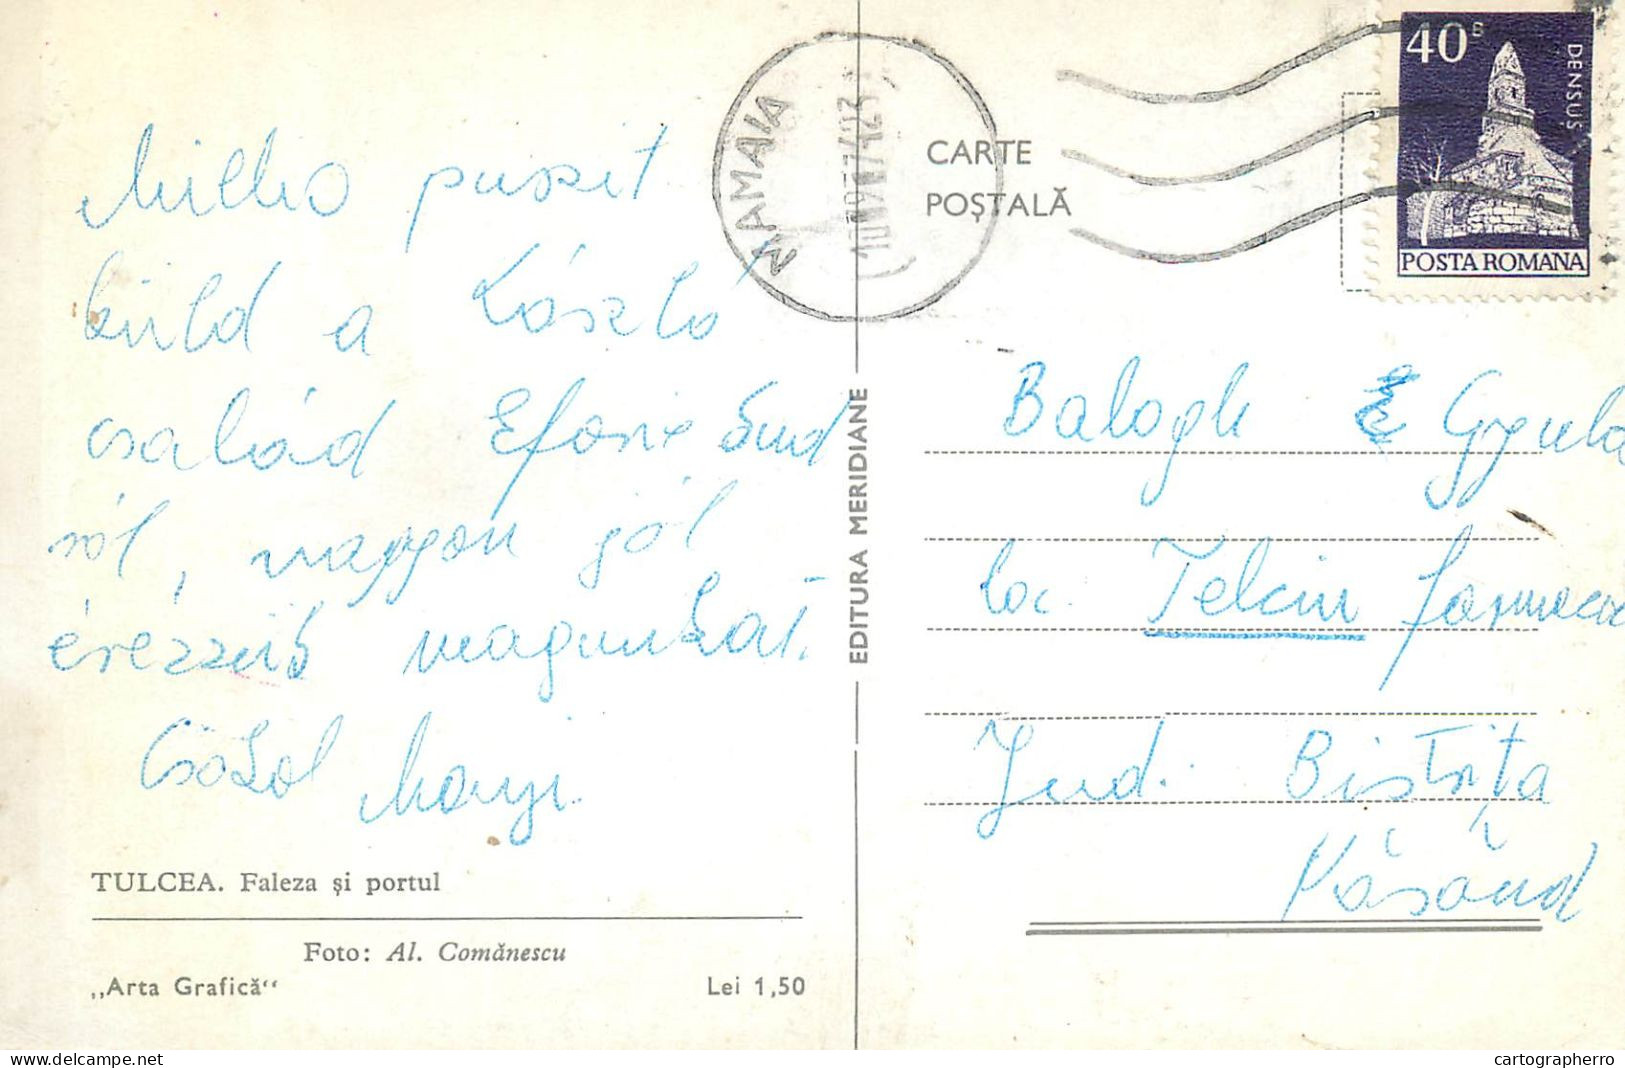 Millió puszit
küld a László
család Eforie Sud
ról, nagyon jól
érezzük magunkat.
Csókol Manyi.
TULCEA. Faleza și portul
Foto: Al. Comănescu
„Arta Grafică“
Lei 1,50
EDITURA MERIDIANE
MAMAIA
CARTE
POȘTALĂ
40 B
DENSUS
POSTA ROMANA
Balogh Gyula
loc. Telciu farmacie
Jud. Bistrița
Năsăud
delcampe.net
cartographerro